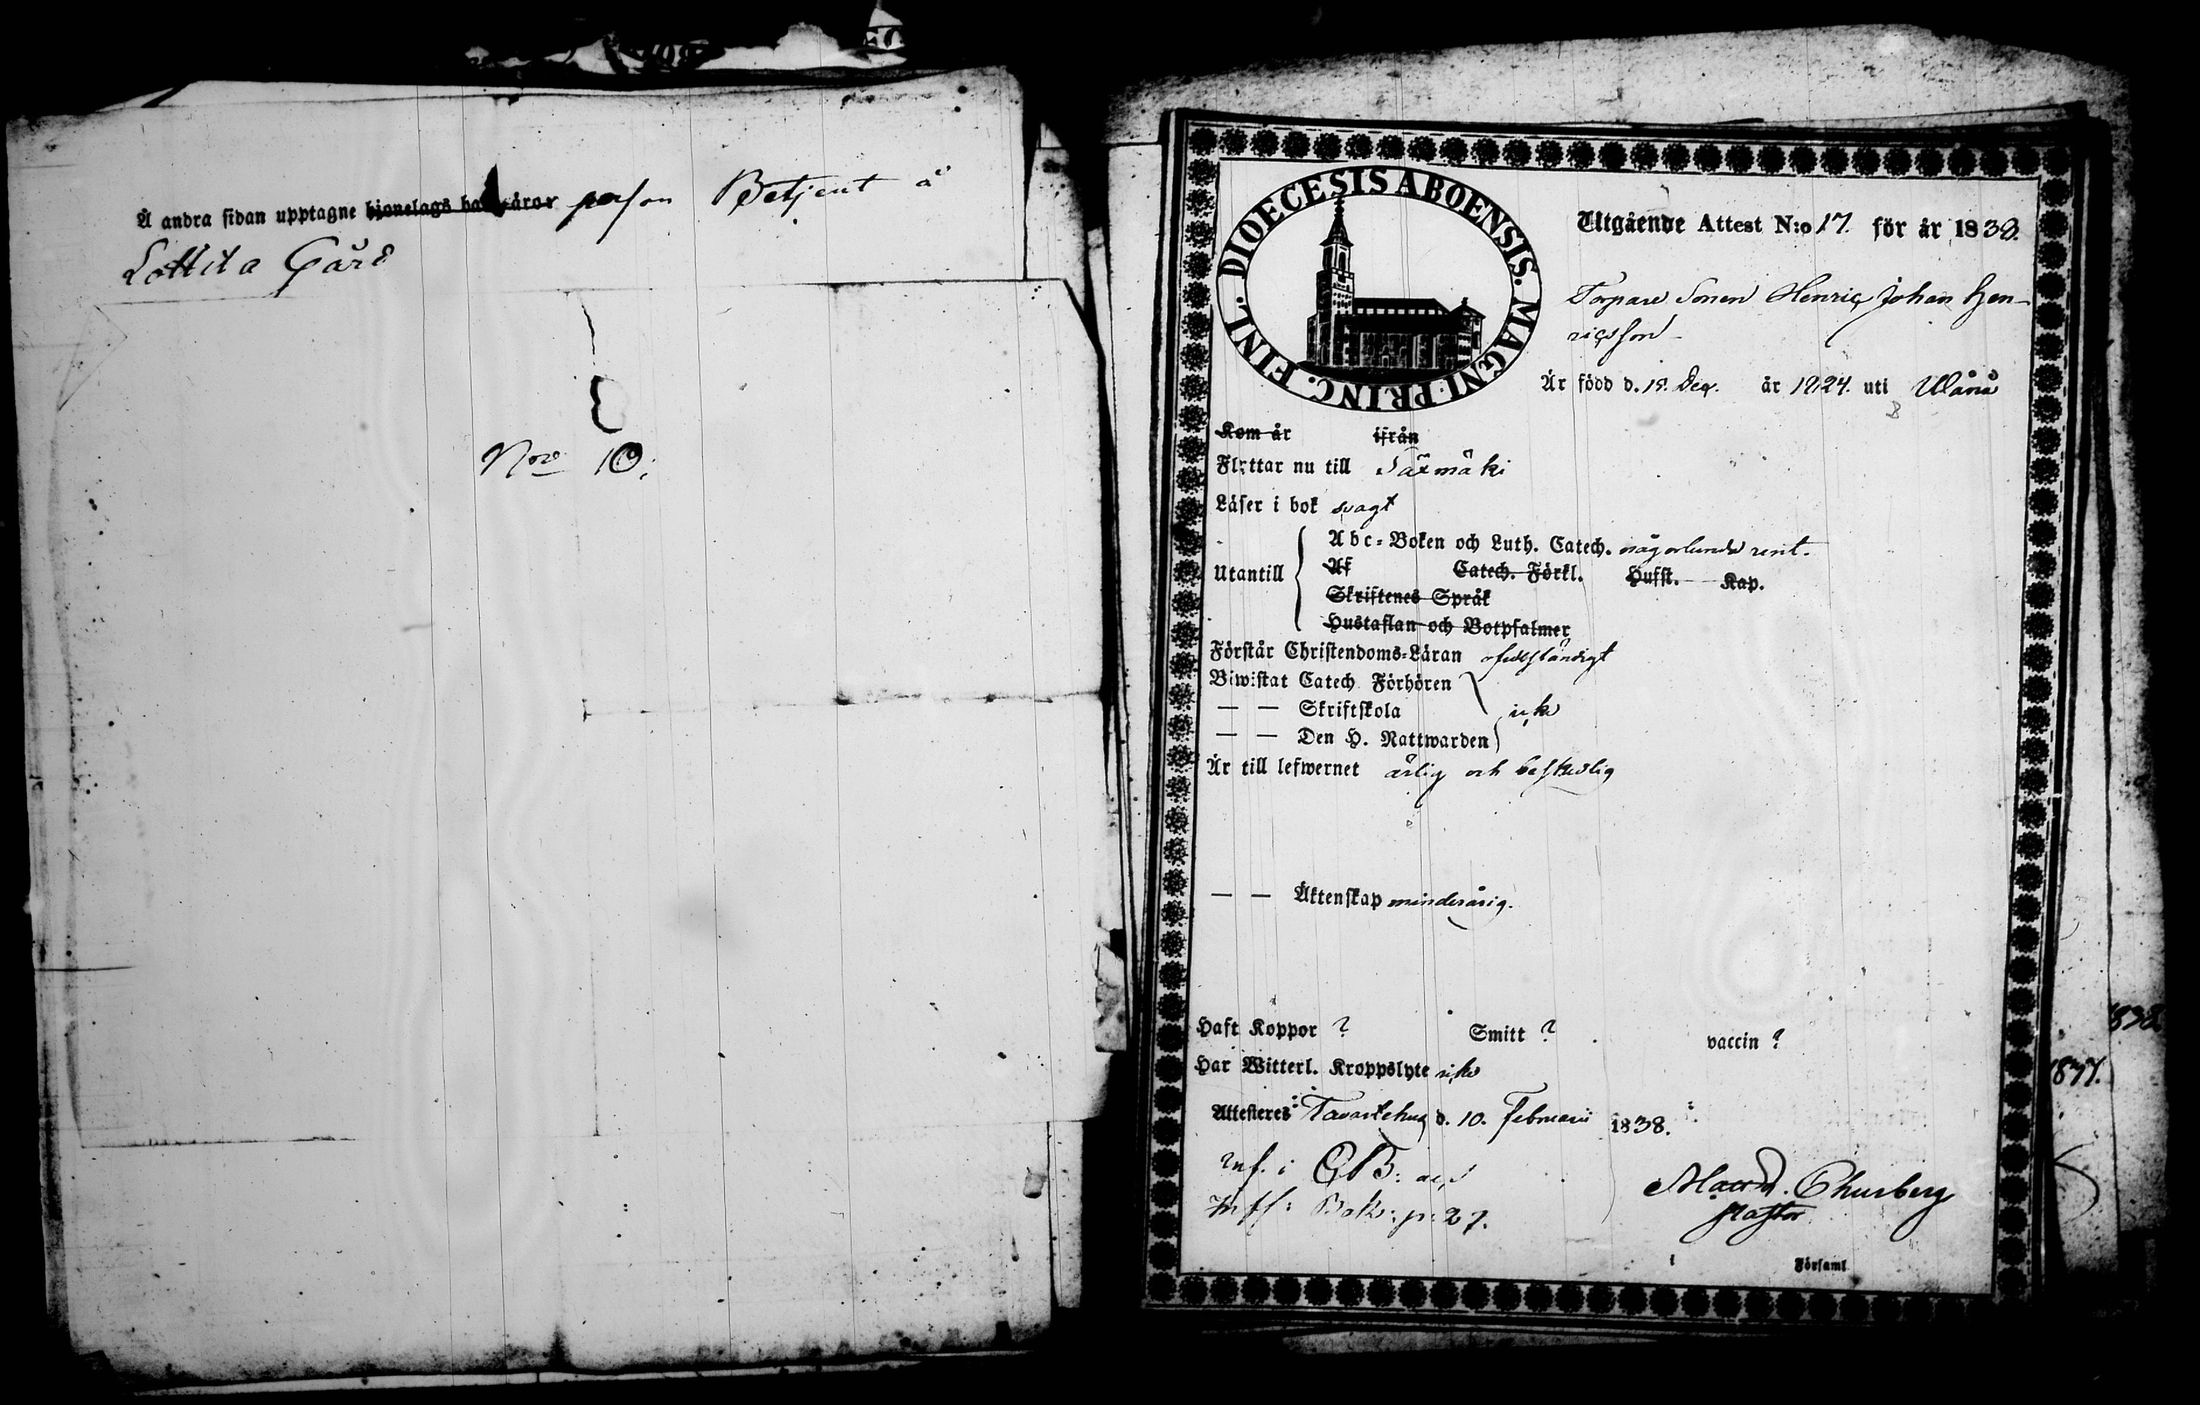 Å andra sidan upptagne hjonelags barn äro person Betjent å
Lottila Gård
N:ro 10.
DIOECESIS ABOENSIS. MAGNI. PRINC. FINL.
Utgående Attest N:o 17. för år 1838.
Torpare Sonen Henric Johan Hen-
ricsson
Är född d. 18. Dec. år 1824. uti Wånå
Kom år ifrån
Flyttar nu till Säxmäki
Läser i bok svagt
Utantill
Abc-Boken och Luth. Catech. någorlunda rent.
Af Catech. Förkl. Husst. Kap.
Skriftenes Språk
Hustaflan och Botpsalmer
Förstår Christendoms-Läran ofullständigt
Biwistat Catech Förhören
— — Skriftskola icke
— — Den H. Nattwarden
Är till lefwernet ärlig och beskedlig
— — Äktenskap minderårig.
Haft Koppor ? Smitt ? vaccin ?
Har Witterl. Kroppslyte icke
Attesteres: Tavastehus d. 10. Februarii 1838.
Inf. i
Bok: p: 27.
Churberg
Pastor
Församl
1838
1837.